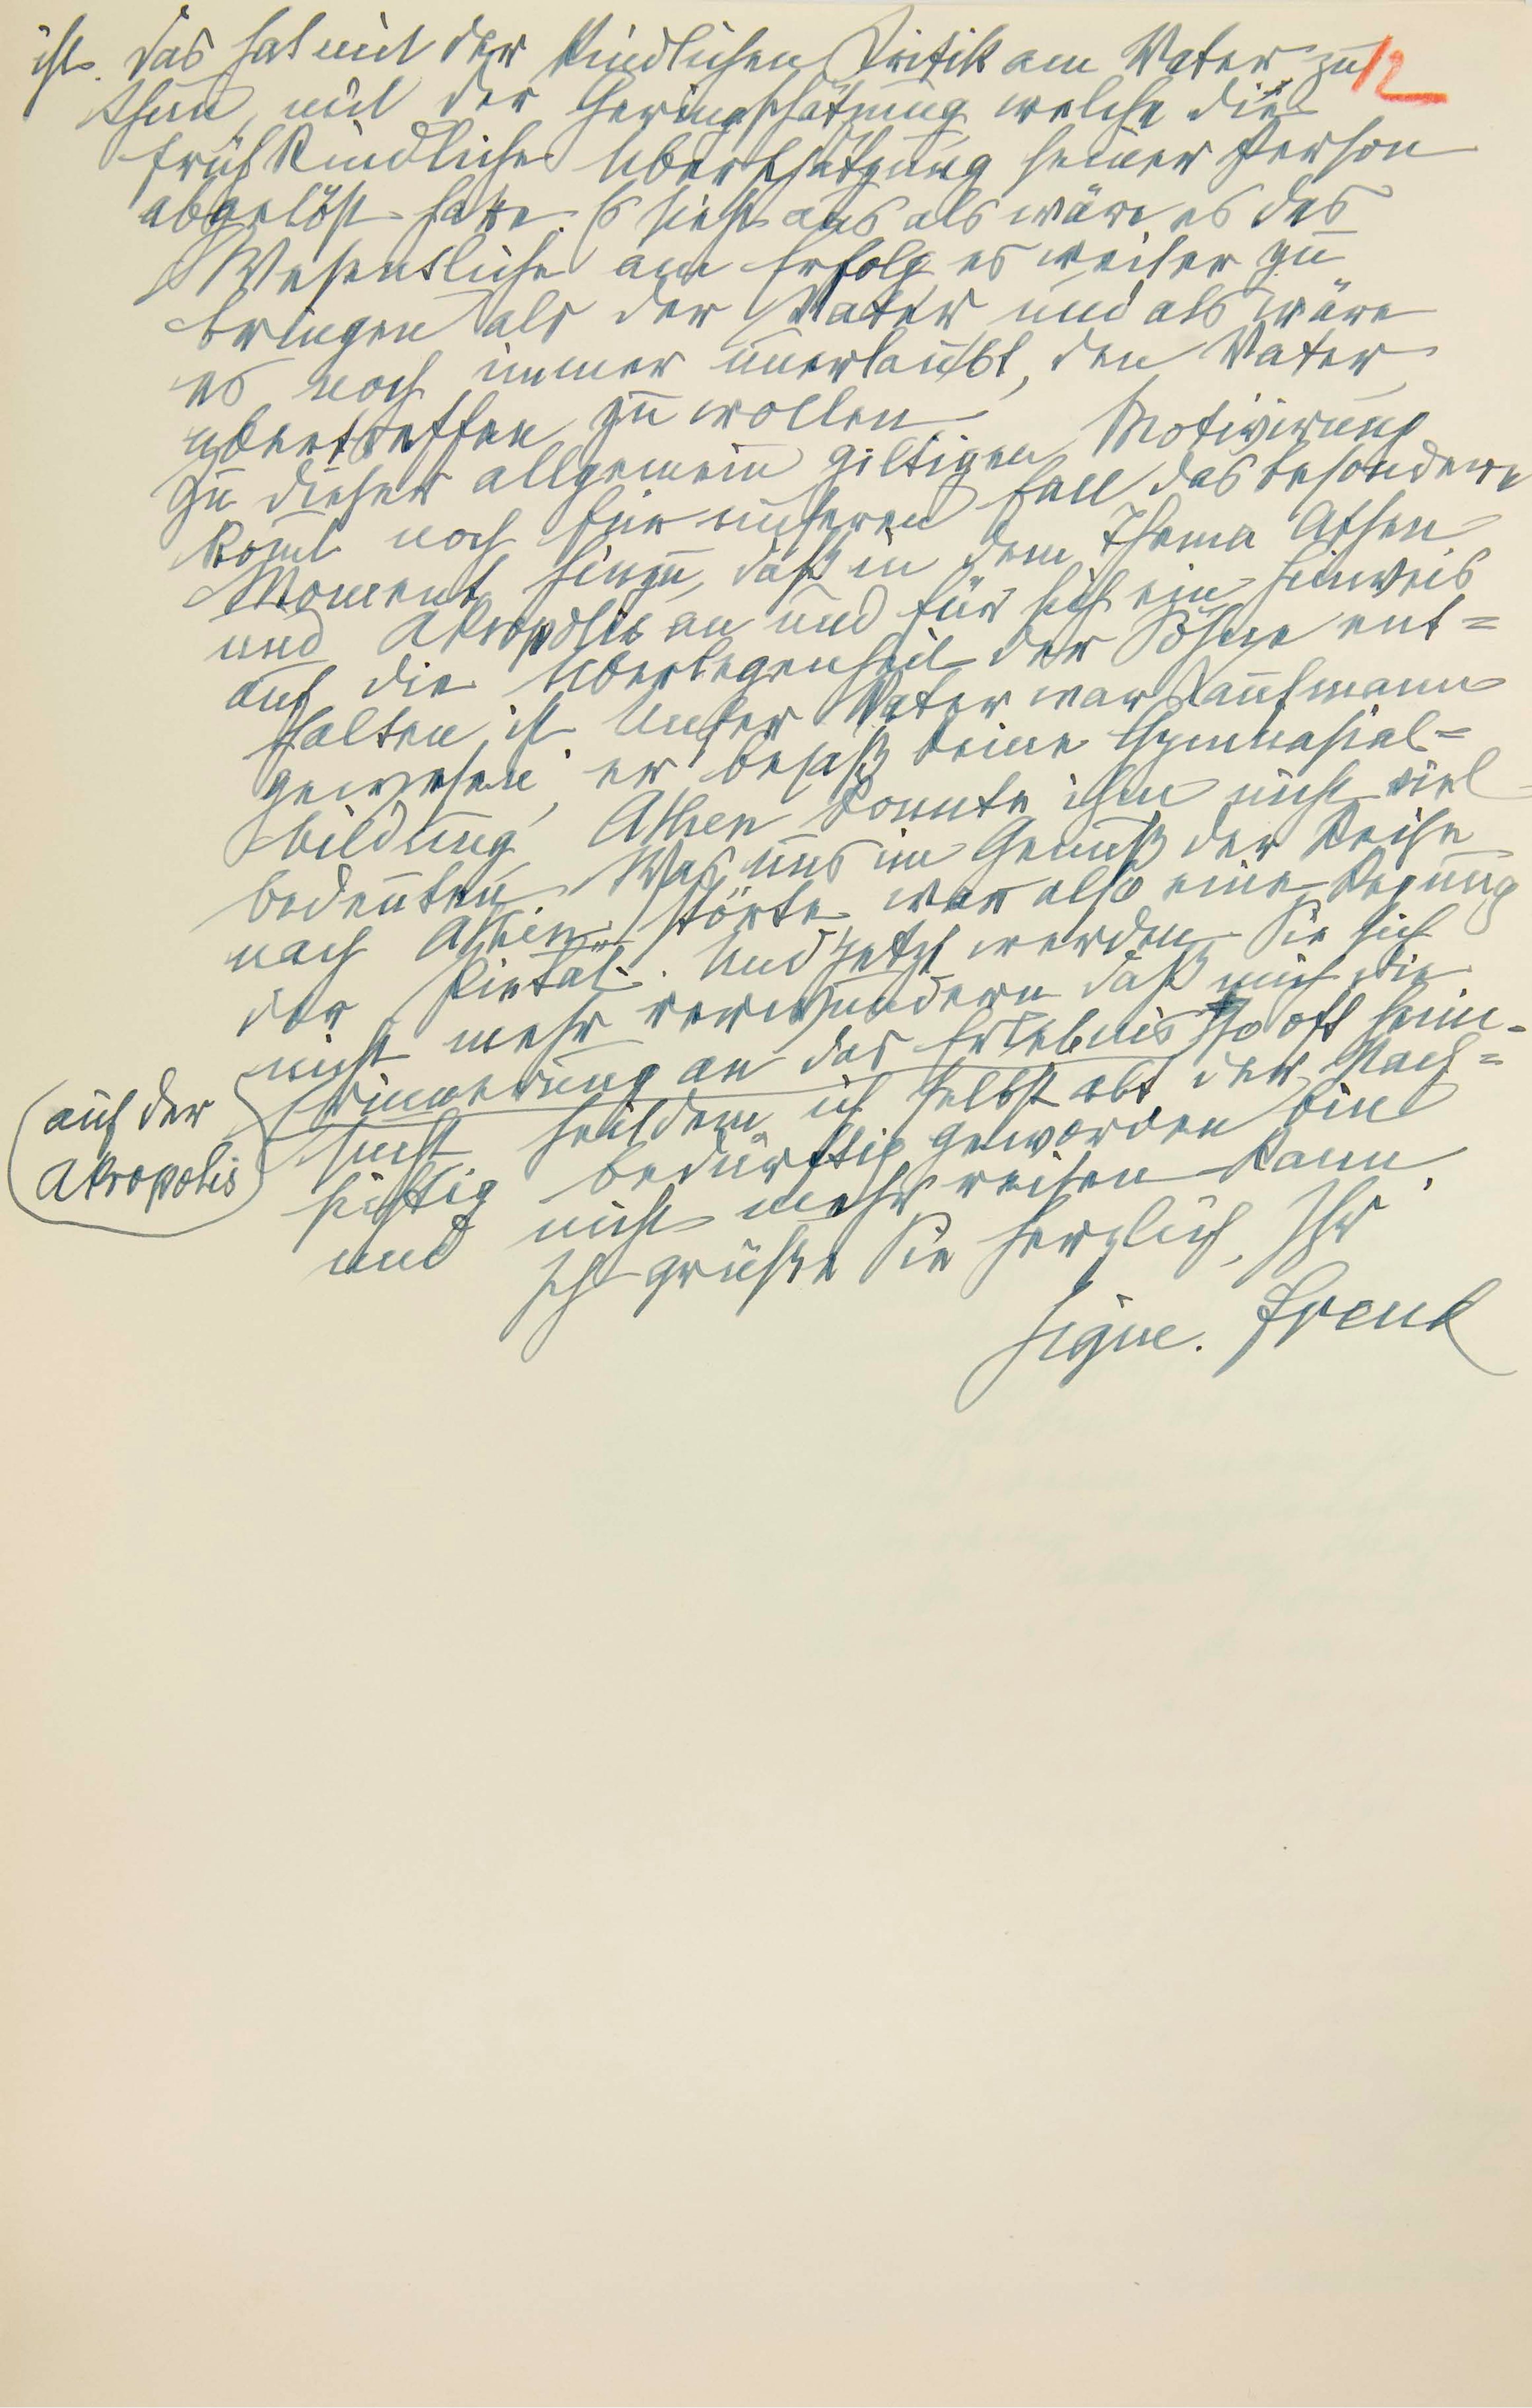 ist. Das hat mit der kindlichen Kritik am Vater zu
12
thun, mit der Geringschätzung welche die
frühkindliche Überschätzung seiner Person
abgelöst hatte. Es sieht aus als wäre es das
Wesentliche am Erfolg, es weiter zu
bringen als der Vater und als wäre
es noch immer unerlaubt, den Vater
übertreffen zu wollen
Zu dieser allgemein giltigen Motivirung
kom̄t noch für unseren Fall das besondere
Moment hinzu, daß in dem Thema Athen
und Akropolis an und für sich ein Hinweis
auf die Überlegenheit der Söhne ent=
halten ist. Unser Vater war Kaufmann
gewesen, er besaß keine Gymnasial=
bildung, Athen konnte ihm nicht viel
bedeuten. Was uns im Genuß der Reise
nach Athen störte war also eine Regung
der Pietät. Und jetzt werden Sie sich
nicht mehr verwundern daß mich die
Erinnerung an das Erlebnis so oft heim=
auf der
Akropolis
sucht seitdem ich selbst alt, der Nach=
sichtig bedürftig geworden bin
und nicht mehr reisen kann.
Ich grüße Sie herzlich, Ihr
Sigm. Freud